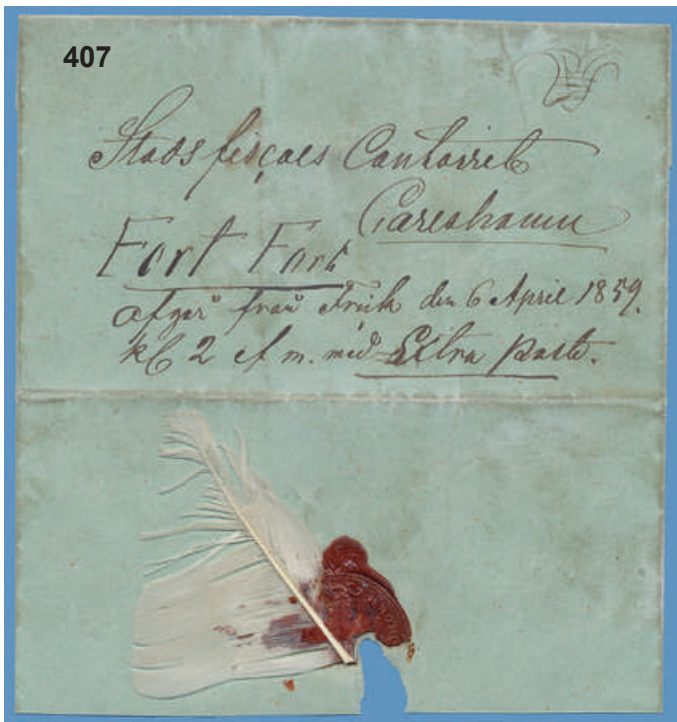 407
Stadsfiscals Contoiret
Carlshamn
Fort Fort
afgår från den 6 April 1859.
kl 2 e f m. med Extra post.